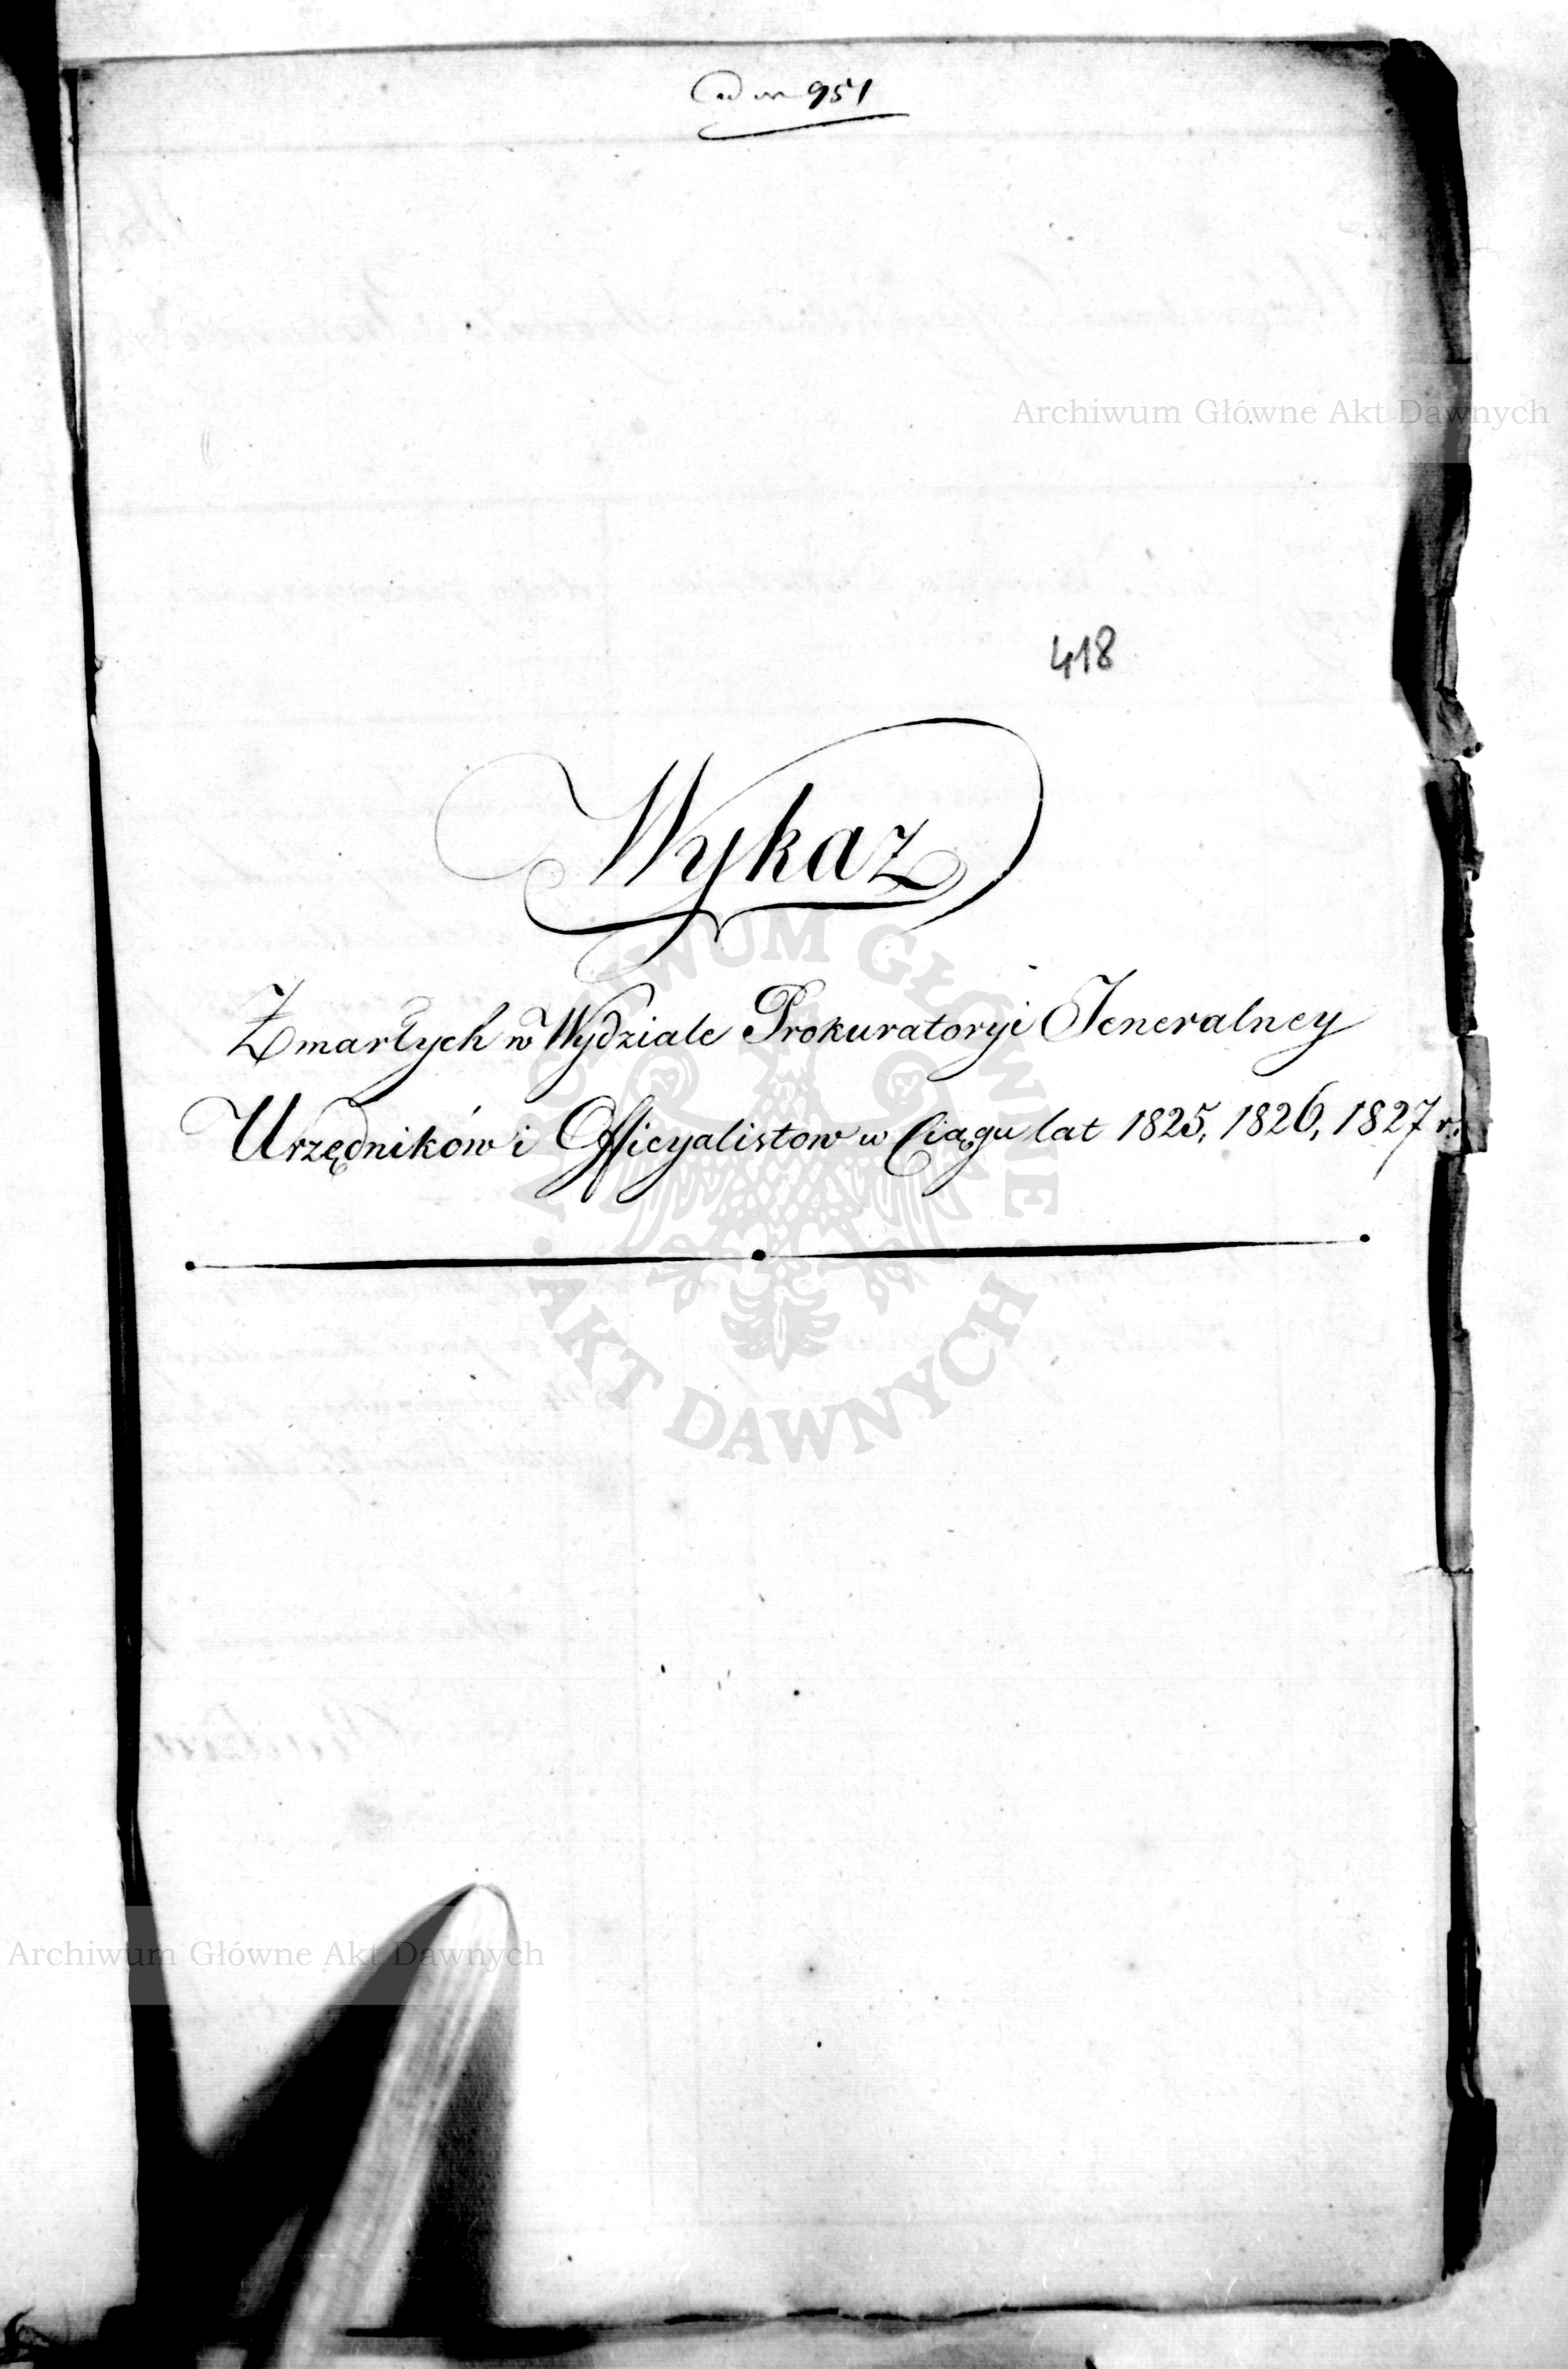 ad nr 951
Archiwum Główne Akt Dawnych
418
Wykaz
Zmarłych w Wydziale Prokuratoryi Jeneralney
Urzędników i Officyalistow w Ciągu lat 1825, 1826, 1827 r.
ARCHIWUM GŁÓWNE
AKT DAWNYCH
Archiwum Główne Akt Dawnych